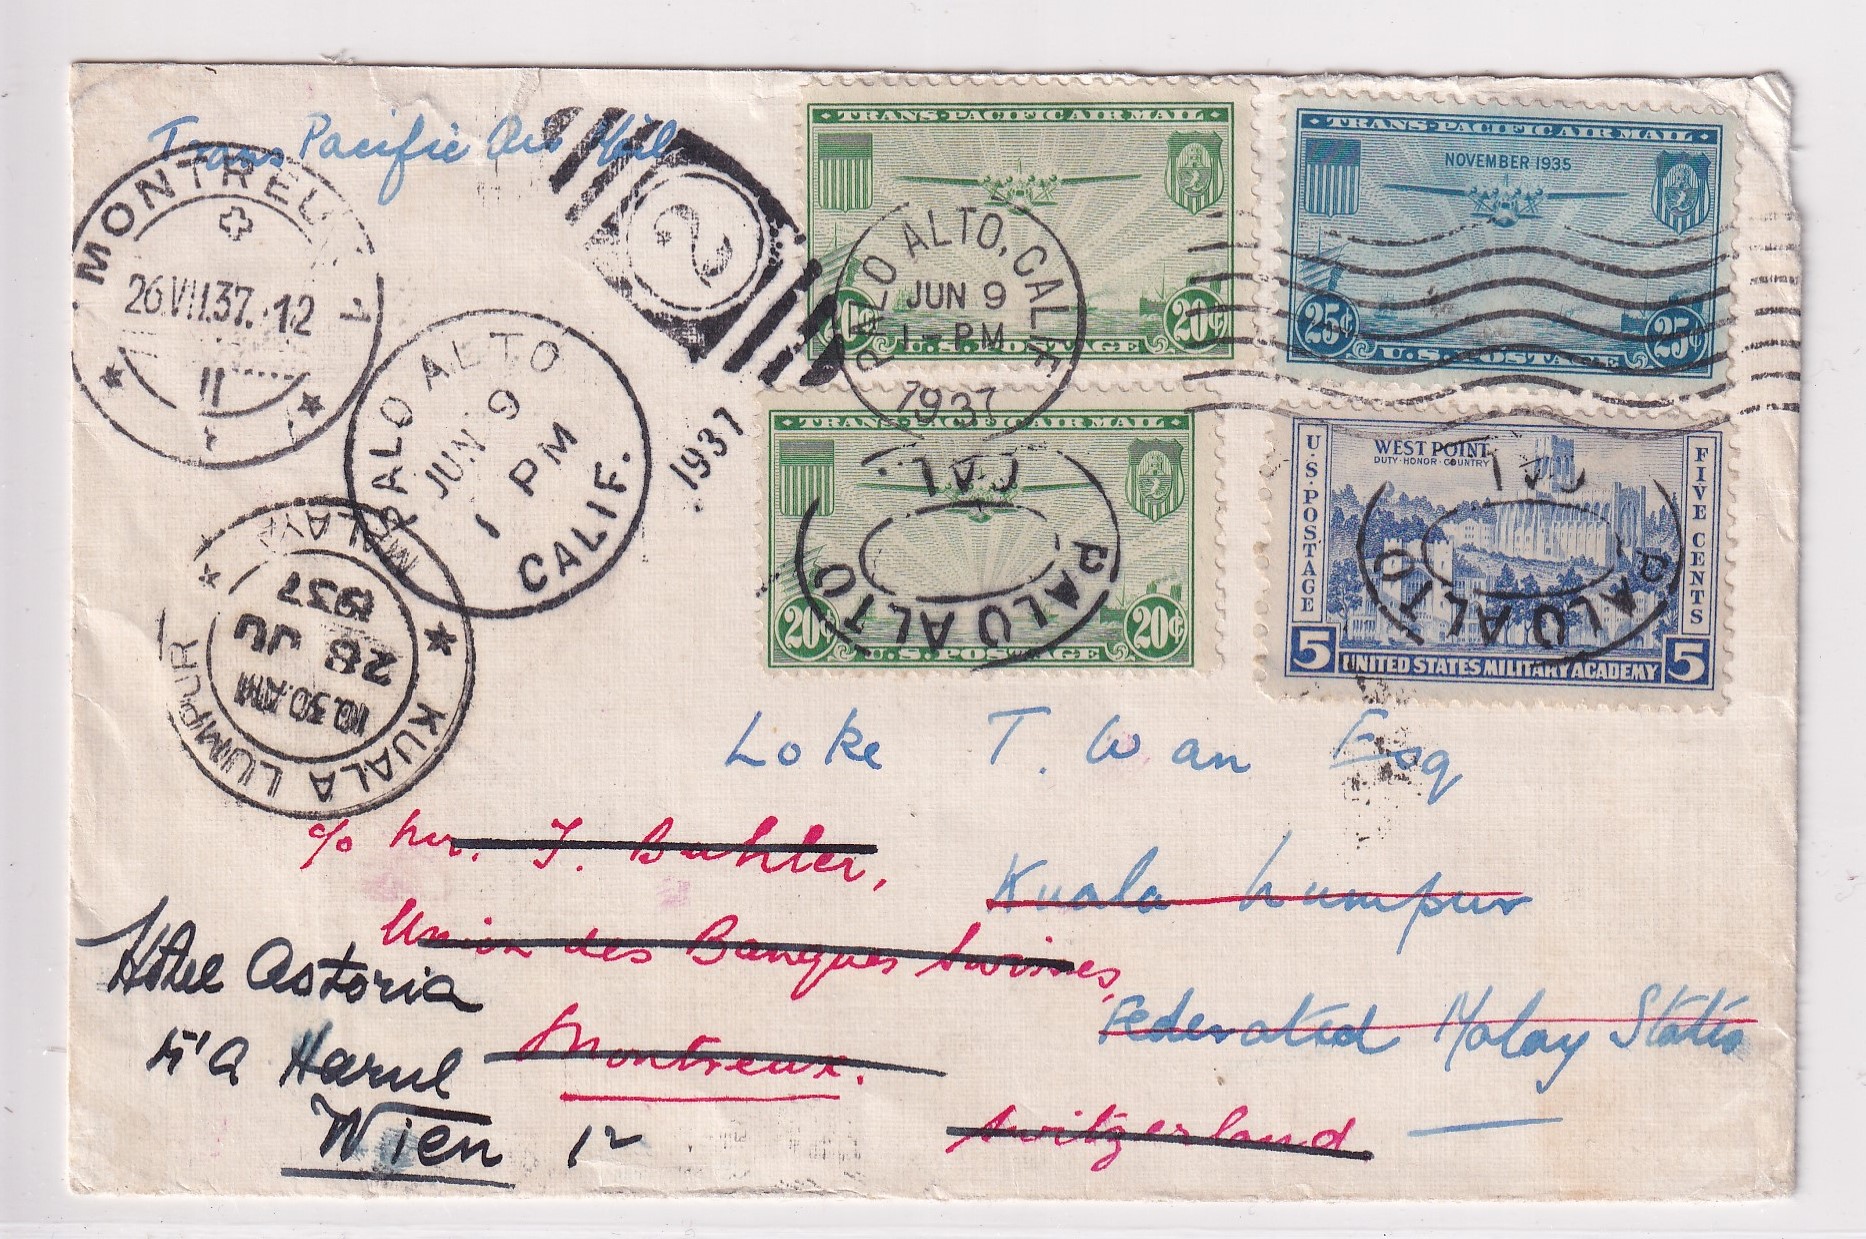 Trans Pacific Air Mail
MONTREUX
26.VII.37.-12
II
PALO ALTO
JUN 9
1 PM
CALIF.
2
1937
KUALA LUMPUR
10.30.AM
28 JU
1937
KUALA LUMPUR
MALAYA
TRANS-PACIFIC AIR MAIL
20¢ 20¢
U.S. POSTAGE
PALO ALTO, CALIF.
JUN 9
1-PM
1937
TRANS-PACIFIC AIR MAIL
NOVEMBER 1935
25¢ 25¢
U.S. POSTAGE
TRANS-PACIFIC AIR MAIL
20¢ 20¢
U.S. POSTAGE
PALO ALTO
CAL.
U.S. POSTAGE
WEST POINT
DUTY·HONOR·COUNTRY
FIVE CENTS
5 UNITED STATES MILITARY ACADEMY 5
PALO ALTO
CAL
Loke T. Wan Esq
Kuala Lumpur
Federated Malay States
c/o Mr. J. Buhler,
Union des Banques Suisses,
Montreux.
Switzerland
Hotel Astoria
Wien